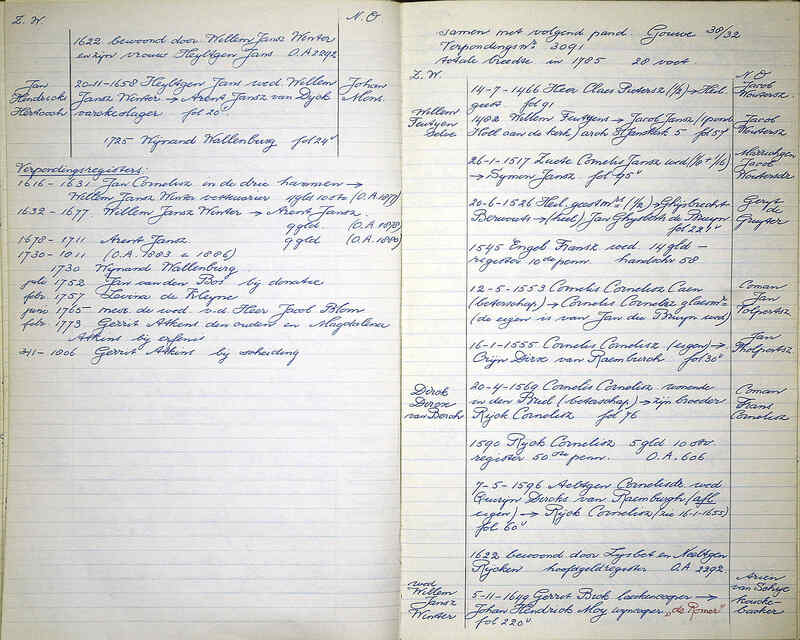 Z. W.
N. O
1622 bewoond door Willem Jansz Winter
en zijn vrouw Heyltgen Jans O.A 2292
Jan
Hendrickz
20-11-1658 Heyltgen Jans wed. Willem
Jansz Winter → Arent Jansz van Dyck
varckeslager fol 20
Johan
1725 Wijnand Wallenburg fol 24v
Verpondingsregisters:
1616 - 1631 Jan Cornelisz en de drie haeme →
Willem Jansz Winter vettwarier (O.A. 1877)
1632 - 1677 Willem Jansz Winter → Arent Jansz.
9 gld. (O.A. 1878)
1678 - 1711 Arent Jansz 9 gld (O.A. 1880)
1730 - 1811 (O.A. 1883 a 1886)
1730 Wijnand Wallenburg.
1752 Jan van den Bos bij donatie
febr. 1757 Lavina de Kleyne
juni 1765 mevr. de wed. v.d. Heer Jacob Blom
febr. 1773 Gerrit Atkins den ouden en Magdalena
Atkins bij erfenis
1806 Gerrit Atkins bij scheiding
samen met volgend pand. Gouwe 30/32
Verpondingsnr 3091
totale breedte in 1785 28 voet
Z. W.
N. O
14-7-1466 Heer Claes Pietersz (1/2) → Heil.
geest fol 91
Jacob
Woutersz.
Willem
Feutgen
1482 Willem Feutgens → Jacob Jansz (pand
Holl aan de kerk) arch St Janskerk 5 fol 57
Jacob
Woutersz
26-1-1517 Luute Cornelis Jansz wed (1/8 + 1/16)
→ Symon Jansz fol 95v
Marrichgen
Jacob
Woutersdr
20-6-1526 Heil. geestmrs (1/2) → Ghysbrecht
→ (heel) Jan Ghysbertsz de Bruyn
fol 221v
Geryt
de
Gruyter
1545 Engel Fransz wed 14 gld -
register 10de penn. handschr 58
12-5-1553 Cornelis Cornelisz Caen
(beterschap) → Cornelis Cornelisz glaesmr
(de eigen is van Jan de Bruyn wed)
Coman
Jan
16-1-1555 Cornelis Cornelisz (eigen) →
Crijn Dirxz van Raemburch fol 30v
Jan
Dirck
Dircxz
van Borch
20-4-1569 Cornelis Cornelisz wonende
in den Briel (beterschap) → zijn broeder
Rijck Cornelisz fol 76
Coman
Frans
Cornelisz
1590 Rijck Cornelisz 5 gld 10 stv.
register 50ste penn. O.A. 606
7-5-1596 Aeltgen Cornelisdr wed
Quiryn Dircks van Raemburgh (afl
eigen) → Rijck Cornelisz (zie 16-1-1555)
fol 60v
1622 bewoond door Lysbet en Neeltgen
Rijcken hoofdgeldregister O.A 2292
wed
Willem
Jansz
Winter
5-11-1649 Gerrit Brok laeckencoper →
Johan Hendrick Moy wyncoper, "de Romer"
fol 220v
Arien
van Schye
koucke-
backer